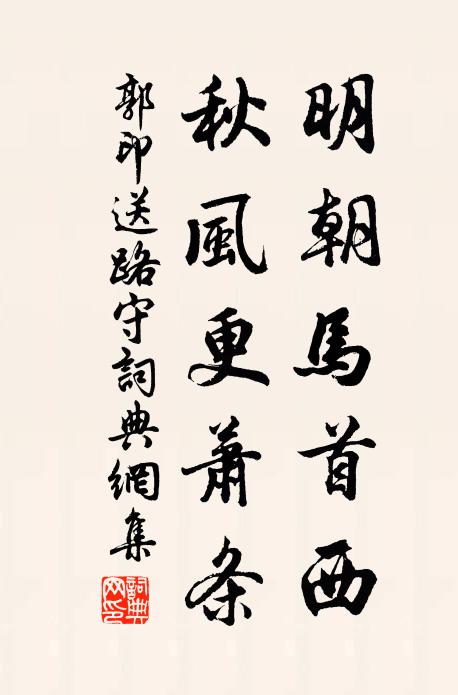 明朝馬首西
秋風更蕭条
郭印送路守詞典網集
詞典网印